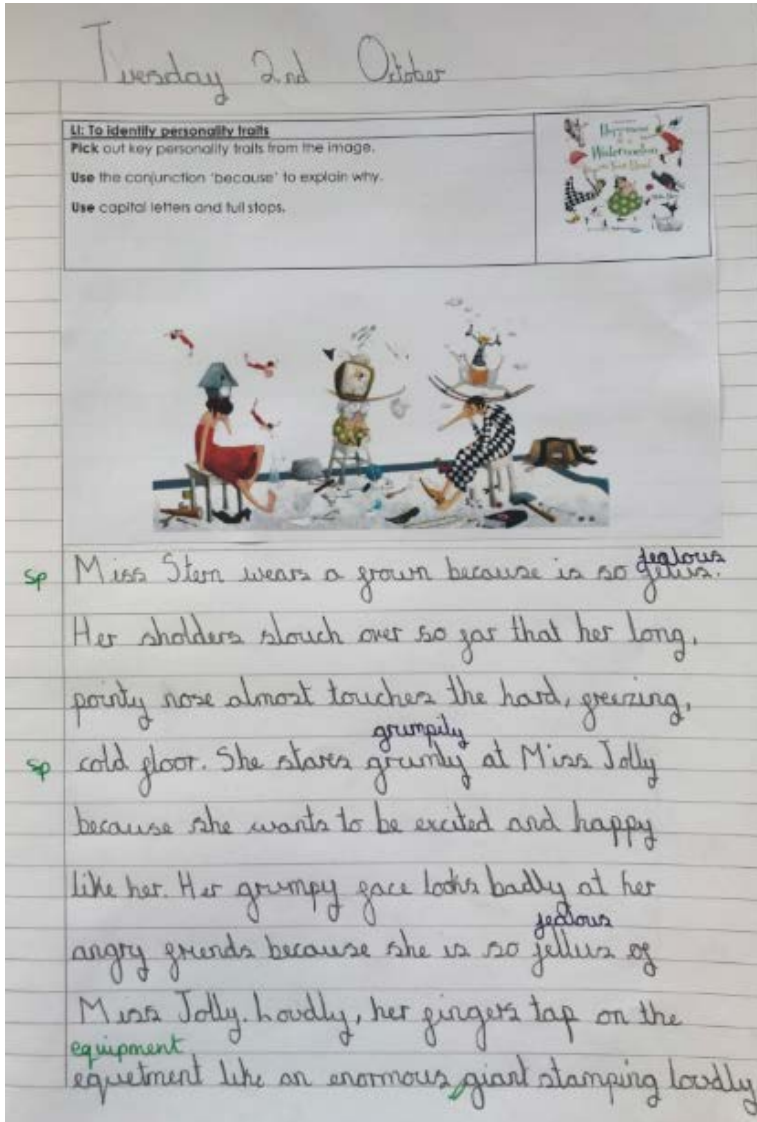 Tuesday 2nd October
LI: To identify personality traits
Pick out key personality traits from the image.
Use the conjunction 'because' to explain why.
Use capital letters and full stops.
Happiness
is a
Watermelon
on Your Head
jealous
sp Miss Stern wears a frown because is so jellus.
Her sholders slouch over so far that her long,
pointy nose almost touches the hard, freezing,
grumpily
sp cold floor. She stares grumly at Miss Jolly
because she wants to be excited and happy
like her. Her grumpy face looks badly at her
jealous
angry friends because she is so jellus of
Miss Jolly. Loudly, her fingers tap on the
equipment
equetment like an enormous, giant stamping loudly